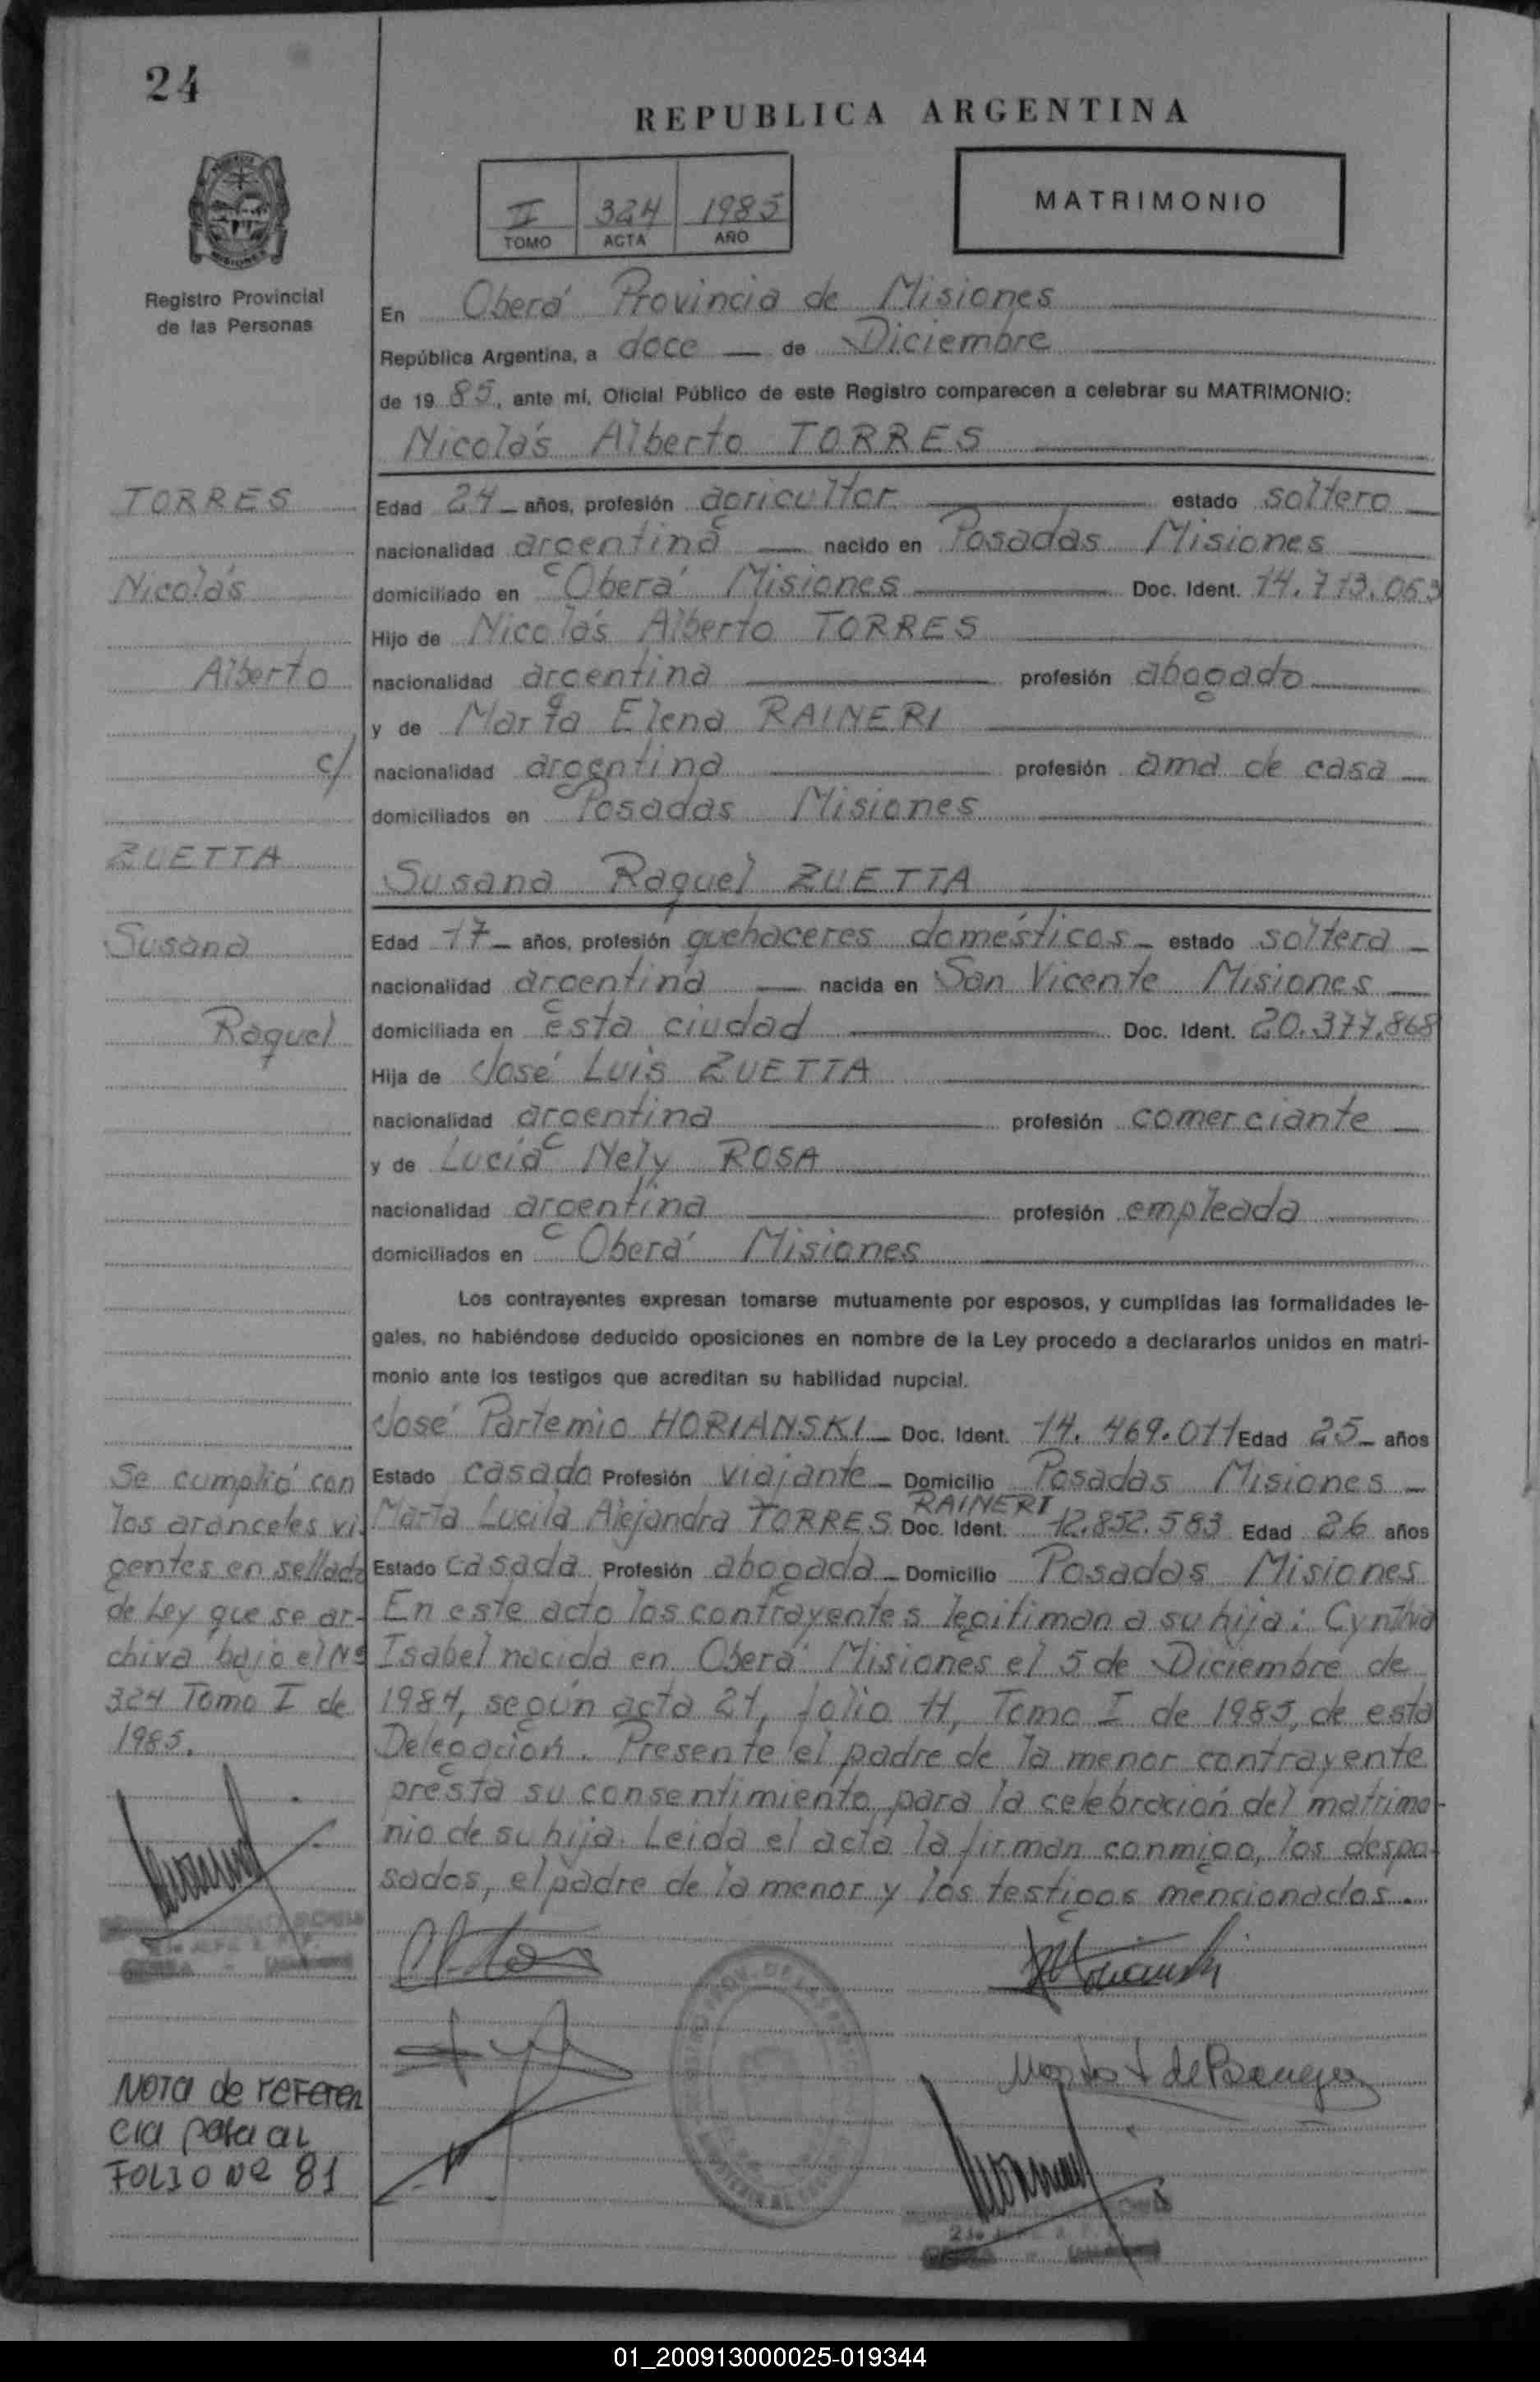 24
REPUBLICA ARGENTINA
II 324 1985
TOMO ACTA AÑO
MATRIMONIO
Registro Provincial
de las Personas
En Oberá Provincia de Misiones
República Argentina, a doce de Diciembre
de 1985, ante mí, Oficial Público de este Registro comparecen a celebrar su MATRIMONIO:
Nicolás Alberto TORRES
TORRES
Nicolás
Alberto
c/
ZUETTA
Susana
Raquel
Edad 24 años, profesión agricultor estado soltero
nacionalidad argentina nacido en Posadas Misiones
domiciliado en Oberá Misiones Doc. Ident. 14.713.063
Hijo de Nicolás Alberto TORRES
nacionalidad argentina profesión abogado
y de Marta Elena RAINERI
nacionalidad argentina profesión ama de casa
domiciliados en Posadas Misiones
Susana Raquel ZUETTA
Edad 17 años, profesión quehaceres domésticos estado soltera
nacionalidad argentina nacida en San Vicente Misiones
domiciliada en esta ciudad Doc. Ident. 20.377.868
Hija de José Luis ZUETTA
nacionalidad argentina profesión comerciante
y de Lucía Nely ROSA
nacionalidad argentina profesión empleada
domiciliados en Oberá Misiones
Los contrayentes expresan tomarse mutuamente por esposos, y cumplidas las formalidades le-
gales, no habiéndose deducido oposiciones en nombre de la Ley procedo a declararlos unidos en matri-
monio ante los testigos que acreditan su habilidad nupcial.
José Partemio HORIANSKI Doc. Ident. 14.469.011 Edad 25 años
Estado casado Profesión viajante Domicilio Posadas Misiones
RAINERI
Marta Lucila Alejandra TORRES Doc. Ident. 12.852.583 Edad 26 años
Estado casada Profesión abogada Domicilio Posadas Misiones
En este acto los contrayentes legitiman a su hija: Cynthia
Isabel nacida en Oberá Misiones el 5 de Diciembre de
1984, según acta 21, folio 11, Tomo I de 1985, de esta
Delegación. Presente el padre de la menor contrayente
presta su consentimiento para la celebración del matrimo-
nio de su hija. Leida el acta la firman conmigo, los despo-
sados, el padre de la menor y los testigos mencionados.
Se cumplió con
los aranceles vi-
gentes en sellado
de Ley que se ar-
chiva bajo el Nº
324 Tomo I de
1985.
NOTA de referen
cia pasa al
FOLIO Nº 81
01_200913000025-019344